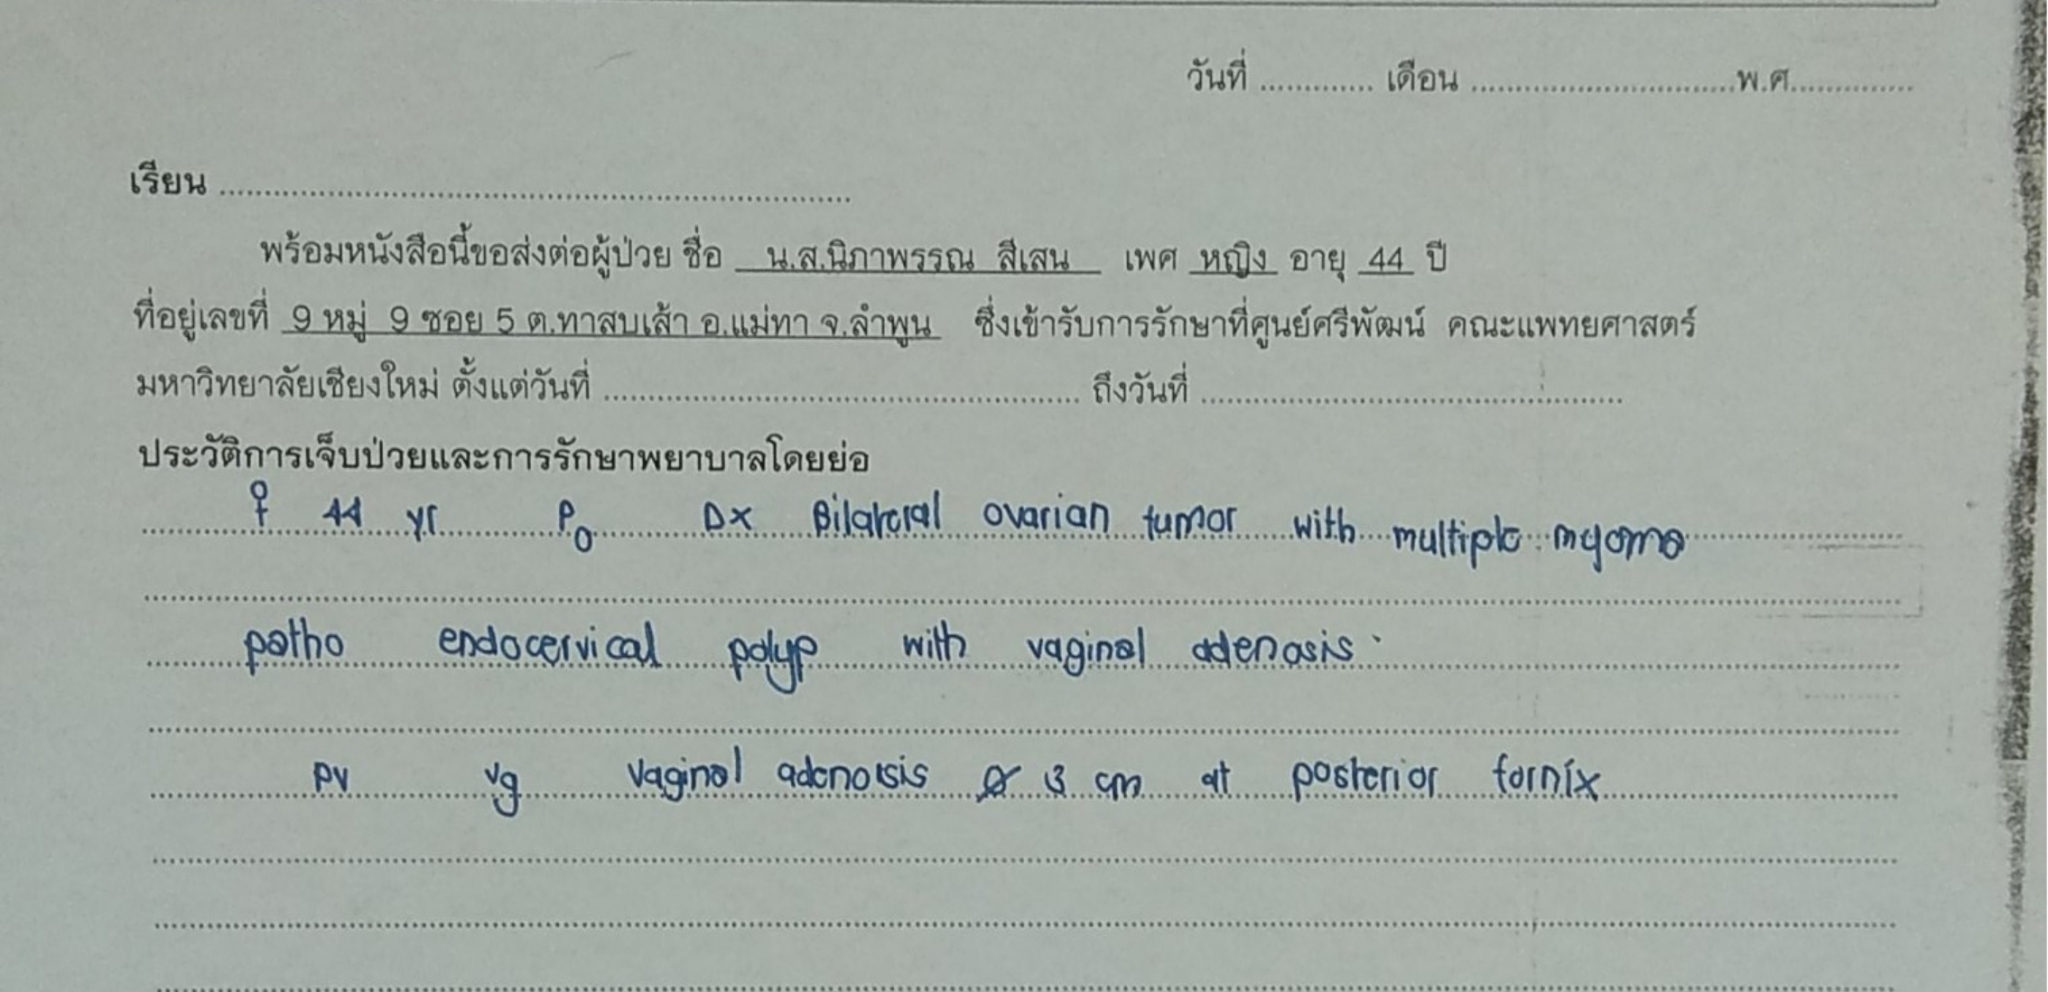 วันที่ ............. เดือน ..............................พ.ศ..............
เรียน ......................................................................
พร้อมหนังสือนี้ขอส่งต่อผู้ป่วย ชื่อ น.ส.นิภาพรรณ สีเสน เพศ หญิง อายุ 44 ปี
ที่อยู่เลขที่ 9 หมู่ 9 ซอย 5 ต.ทาสบเส้า อ.แม่ทา จ.ลำพูน ซึ่งเข้ารับการรักษาที่ศูนย์ศรีพัฒน์ คณะแพทยศาสตร์
มหาวิทยาลัยเชียงใหม่ ตั้งแต่วันที่ ...................................................... ถึงวันที่ ................................................
ประวัติการเจ็บป่วยและการรักษาพยาบาลโดยย่อ
♀ 44 yr P0 Dx Bilateral ovarian tumor with multiple myoma
patho endocervical polyp with vaginal adenosis
PV vg vaginal adenosis ø 3 cm at posterior fornix